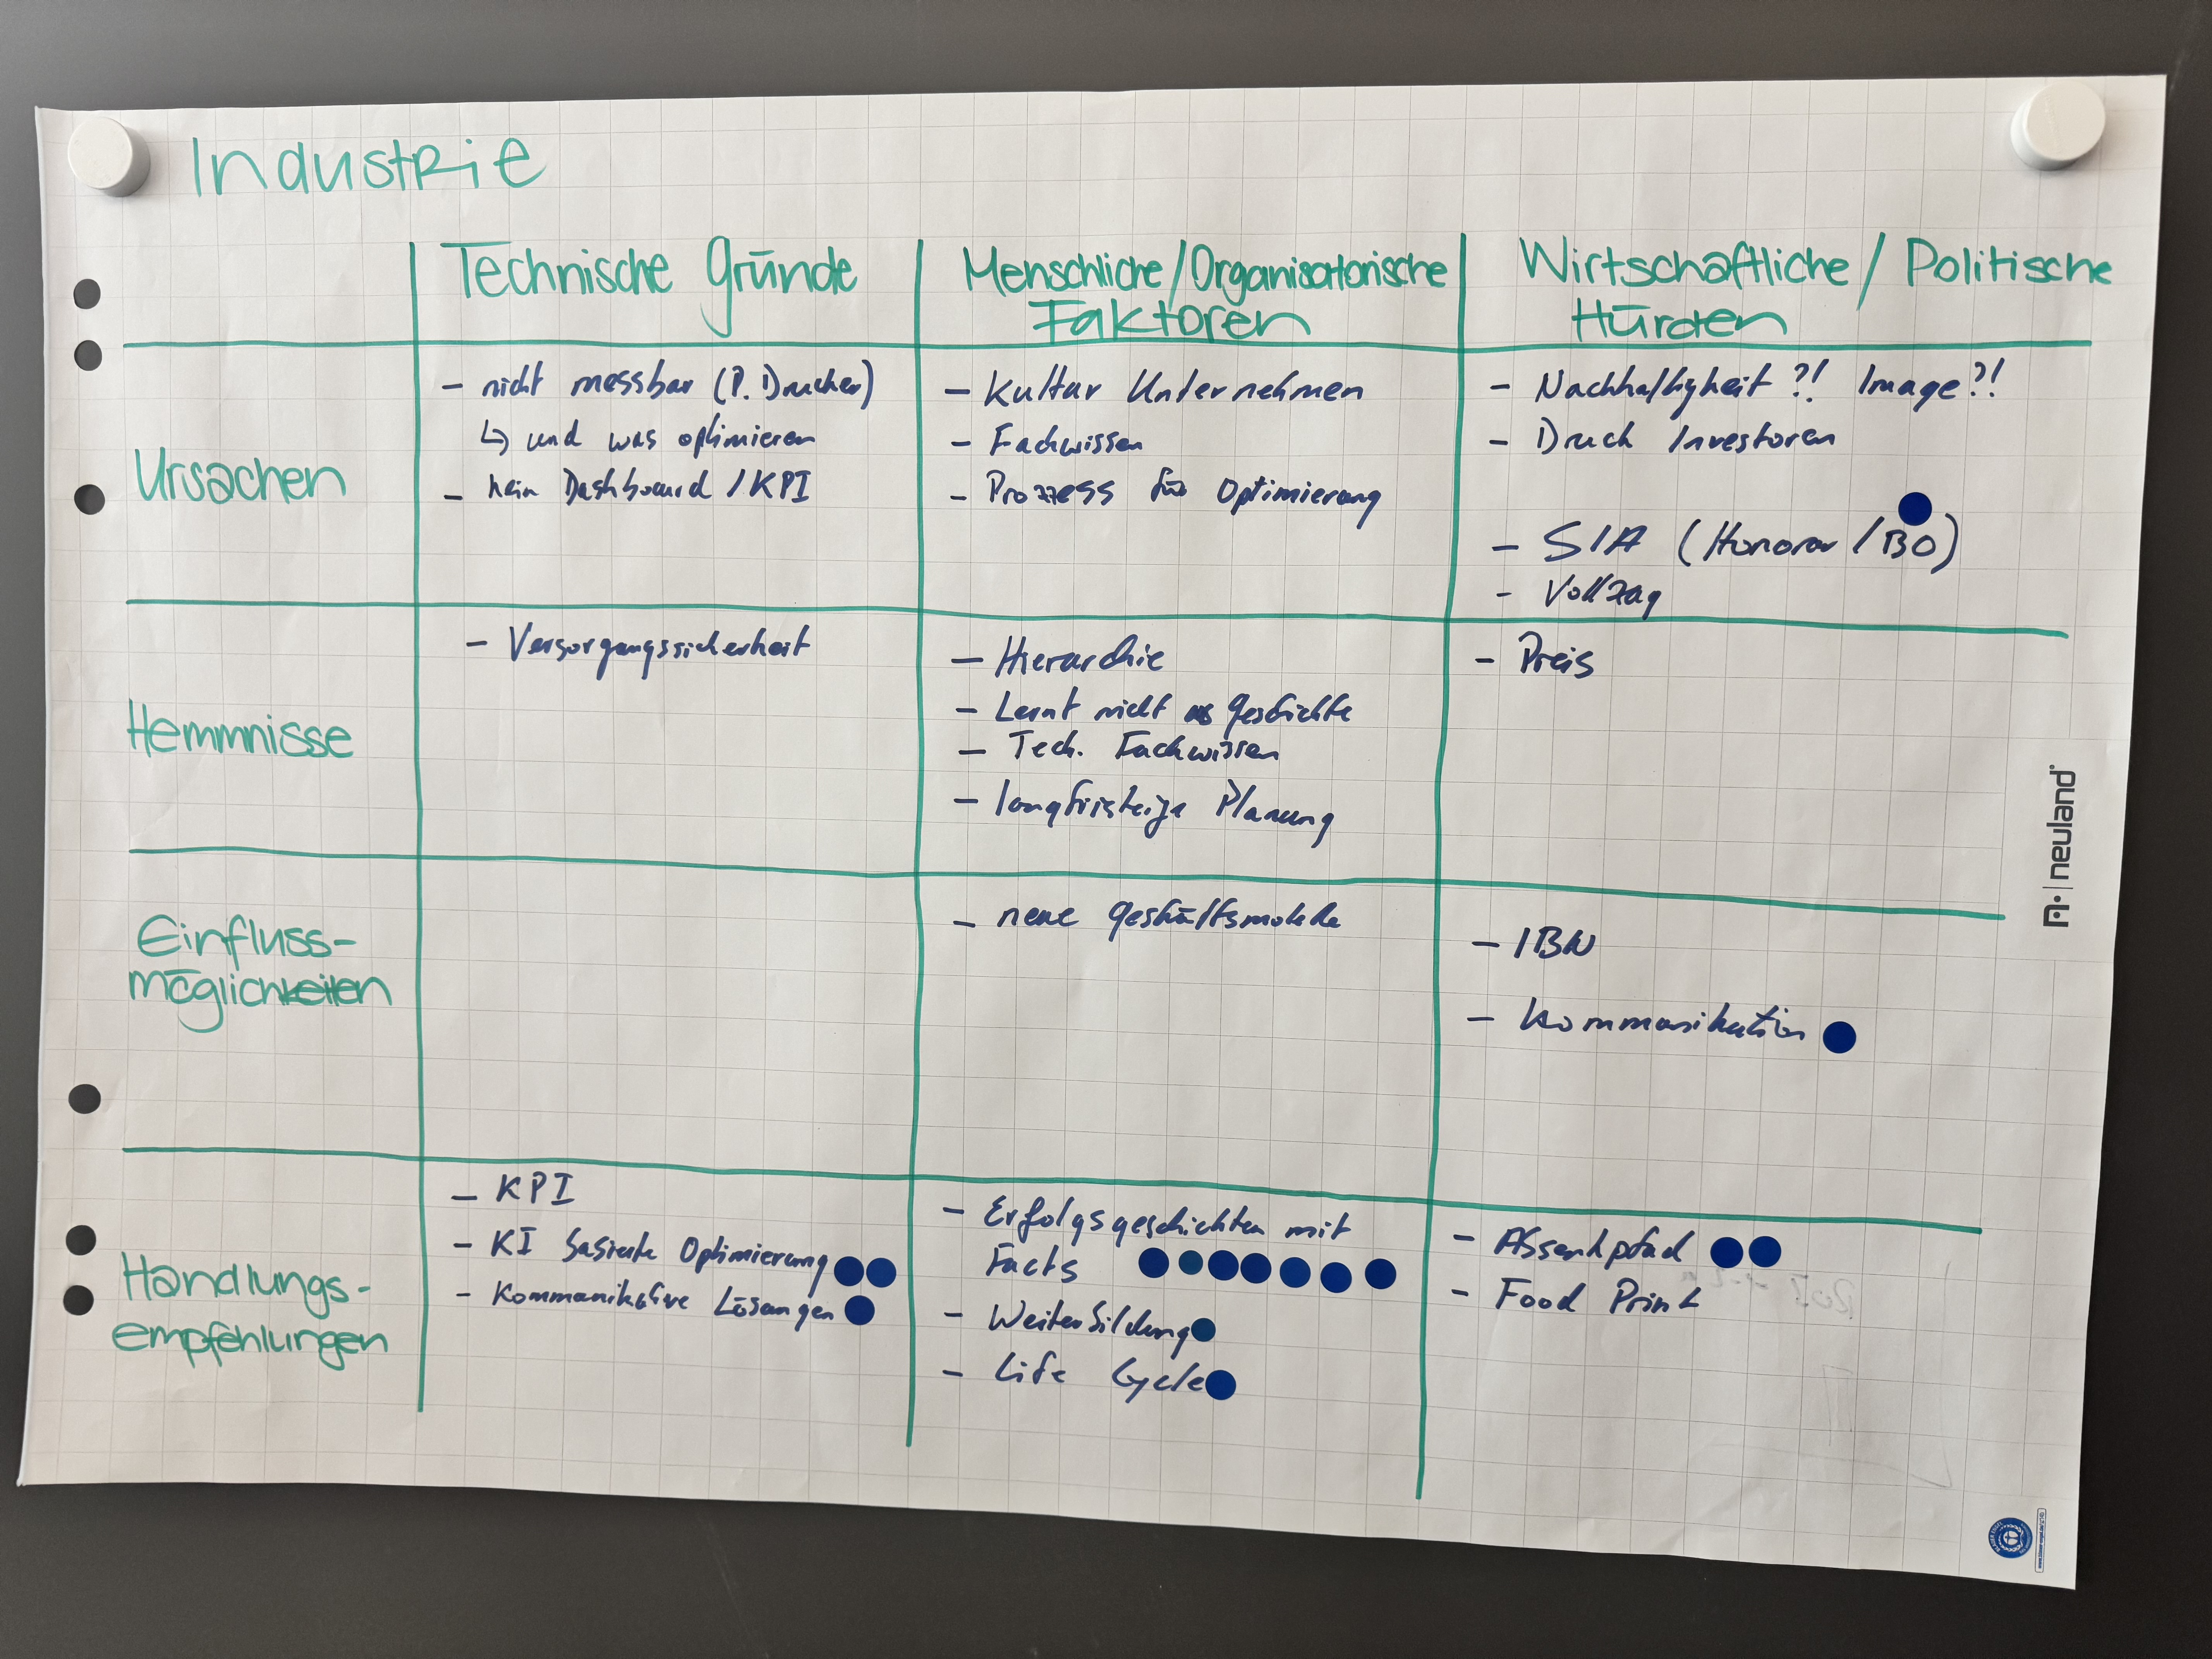 Industrie
Technische Gründe
Menschliche/Organisatorische
Faktoren
Wirtschaftliche/Politische
Hürden
Ursachen
- nicht messbar (P. Drucker)
↳ und was optimieren
- kein Dashboard / KPI
- Kultur Unternehmen
- Fachwissen
- Prozess für Optimierung
- Nachhaltigkeit ?! Image ?!
- Druck Investoren
- SIA (Honorar / BO)
- Vollzug
Hemmnisse
- Versorgungssicherheit
- Hierarchie
- Lernt nicht aus Geschichte
- Tech. Fachwissen
- longfristeige Planung
- Preis
Einfluss-
möglichkeiten
- neue Geshäftsmodelle
- IBN
- Kommunikation
Handlungs-
empfehlungen
- KPI
- KI basierte Optimierung
- Kommunikative Lösungen
- Erfolgsgeschichten mit
Facts
- Weiterbildung
- Life Cycle
- Absenkpfad
- Food Print
neuland